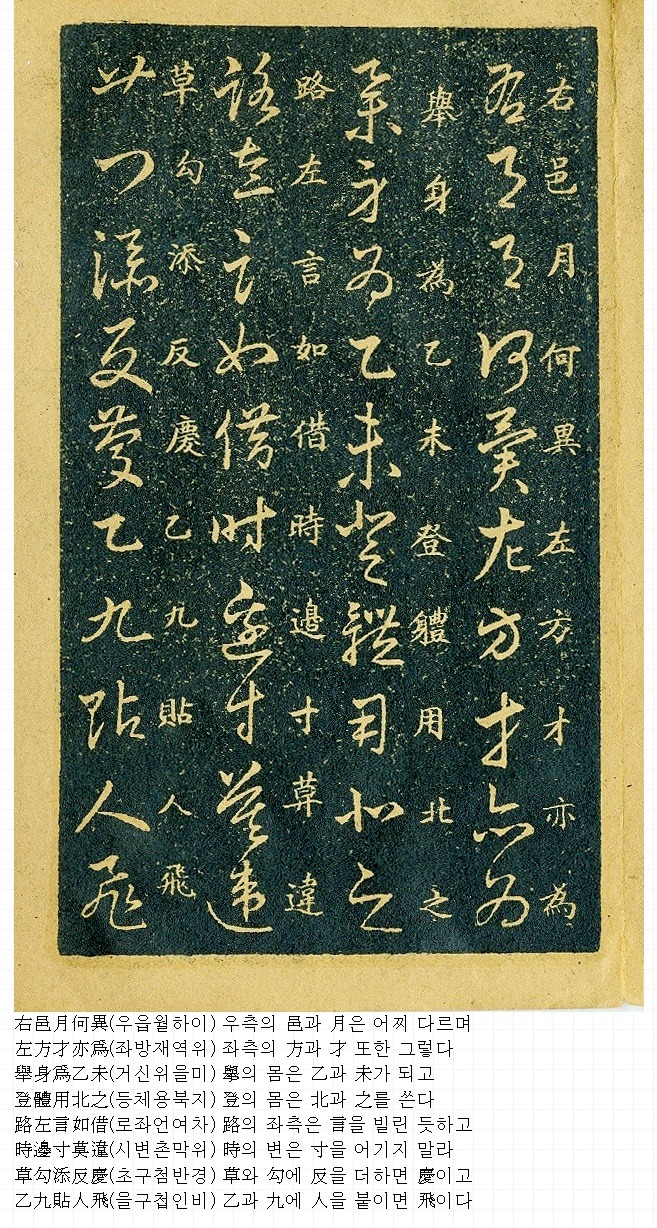 右邑月何異左方才亦為
右邑月何異左方才亦為
舉身為乙未登體用北之
舉身為乙未登體用北之
路左言如借時邉寸莫違
路左言如借時邊寸莫違
草勾添反慶乙九貼人飛
草勾添反慶乙九貼人飛
右邑月何異(우읍월하이) 우측의 邑과 月은 어찌 다르며
左方才亦爲(좌방재역위) 좌측의 方과 才 또한 그렇다
舉身爲乙未(거신위을미) 擧의 몸은 乙과 未가 되고
登體用北之(등체용북지) 登의 몸은 北과 之를 쓴다
路左言如借(로좌언여차) 路의 좌측은 言을 빌린 듯하고
時邊寸莫違(시변촌막위) 時의 변은 寸을 어기지 말라
草勾添反慶(초구첨반경) 草와 勾에 反을 더하면 慶이고
乙九貼人飛(을구첩인비) 乙과 九에 人을 붙이면 飛이다